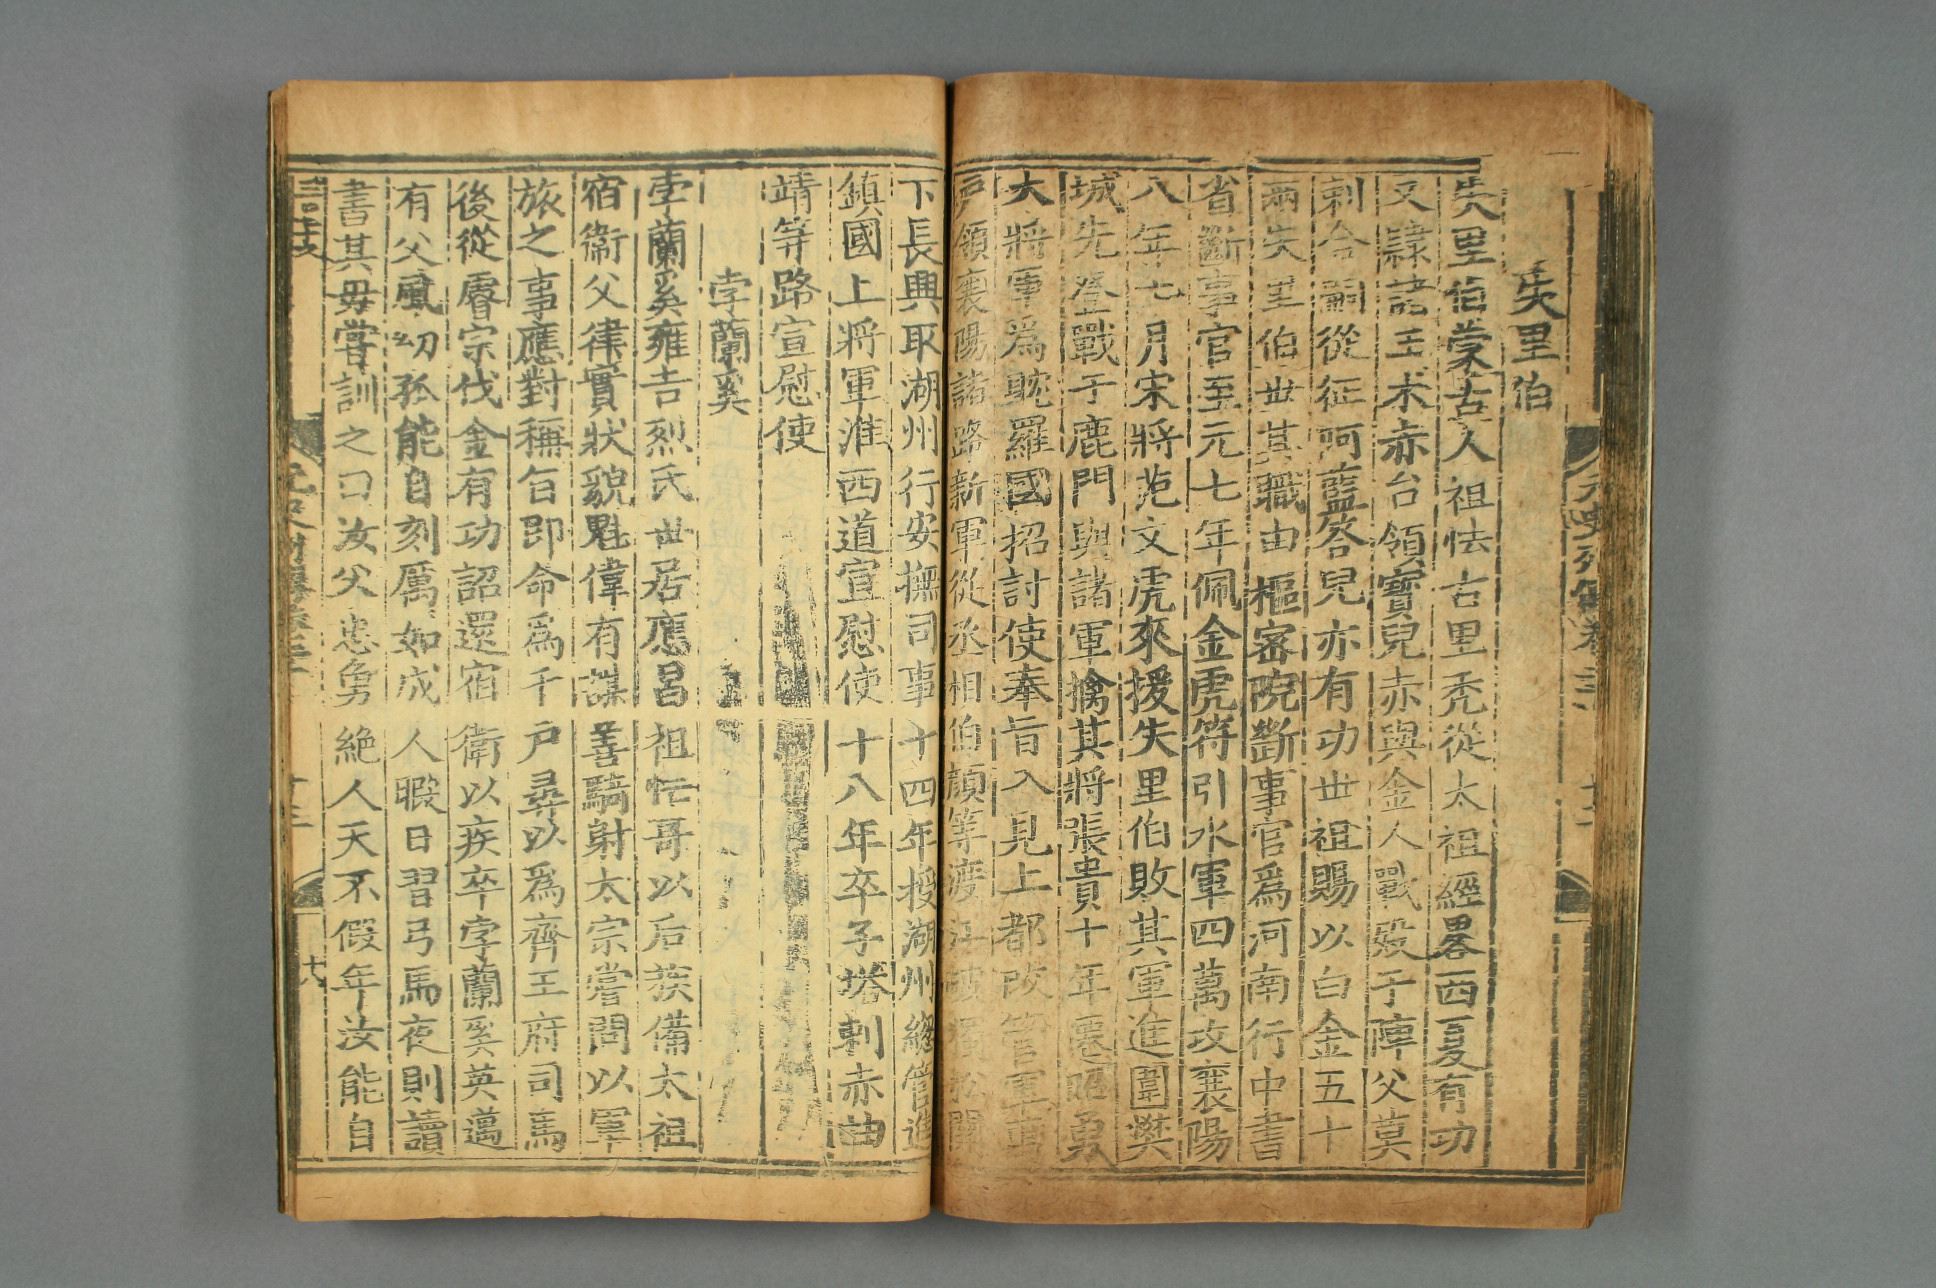 失里伯
失里伯蒙古人祖怯古里禿從太祖經畧西夏有功
又隷諸王朮赤台領寶兒赤與金人戰歿于陣父莫
剌合嗣從征阿藍答兒亦有功世祖賜以白金五十
兩失里伯世其職由樞密院斷事官為河南行中書
省斷事官至元七年佩金虎符引水軍四萬攻襄陽
八年七月宋將范文虎來援失里伯敗其軍進圍樊
城先登戰于鹿門與諸軍擒其將張貴十年遷昭勇
大將軍為耽羅國招討使奉旨入見上都改管軍萬
戶領襄陽諸路新軍從丞相伯顏等渡江破獨松關
下長興取湖州行安撫司事十四年授湖州總管進
鎮國上將軍淮西道宣慰使十八年卒子塔剌赤曲
靖等路宣慰使
孛蘭奚
孛蘭奚雍吉烈氏世居應昌祖忙哥以后族備太祖
宿衛父律實狀貌魁偉有謀善騎射太宗嘗問以軍
旅之事應對稱旨即命為千戶尋以為齊王府司馬
後從睿宗伐金有功詔還宿衛以疾卒孛蘭奚英邁
有父風幼孤能自刻厲如成人暇日習弓馬夜則讀
書其母嘗訓之曰汝父忠勇絶人天不假年汝能自